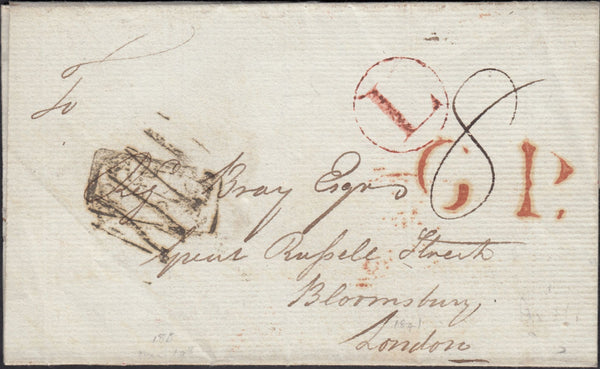 To
L
8
Bray Esqre
C P.
Great Russell Street
Bloomsbury
London